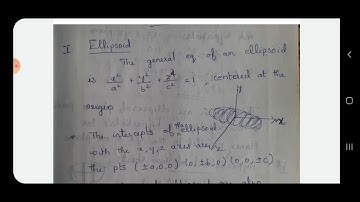 I Ellipsoid
The general eq. of an ellipsoid
is x²/a² + y²/b² + z²/c² = 1, centered at the
origin
* The intercepts of the ellipsoid
with the x, y, z axes are
the pts (±a,0,0) (0,±b,0) (0,0,±c)